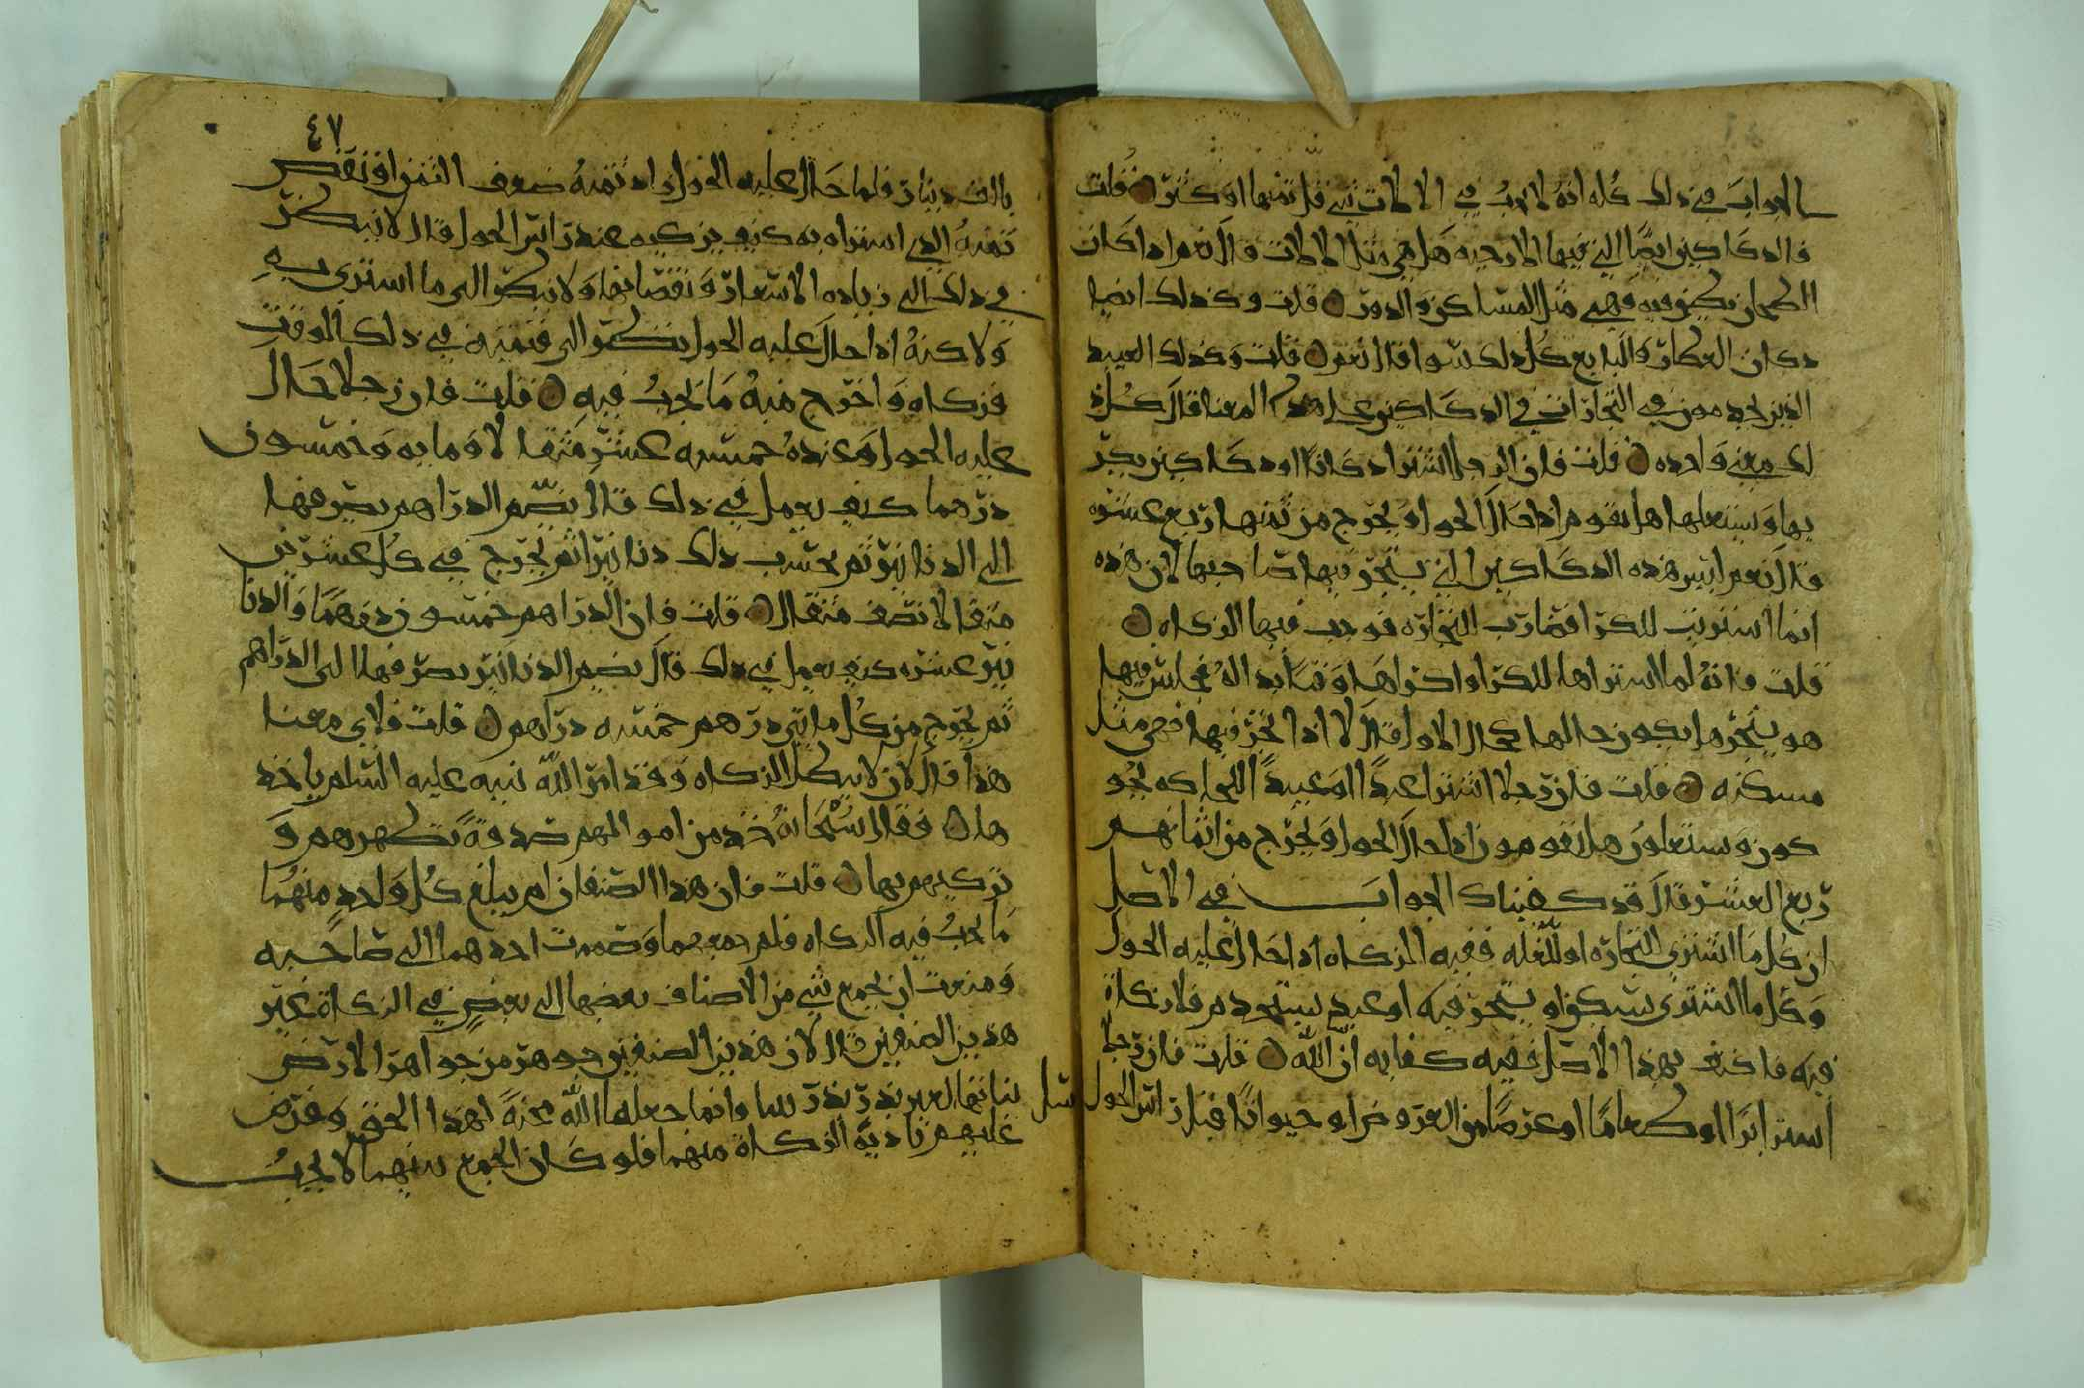 الجواب في ذلك كله انه لا يجب في الالات شي قل ثمنها او كثر ۝ قلت
فالدكاكين ايضا التي فيها الارحيه هل هي مثل الالات قال نعم اذا كان
الطحان يكون فيه فهي مثل المساكن والدور ۝ قلت وكذلك ايضا
دكان العطار والبايع كل ذلك سوا قال نعم ۝ قلت وكذلك العبيد
الذين يخدمون في التجارات في الدكاكين على هذا المعنا قال كل ذ
لك معنى واحد ۝ قلت فان الرجل اشترا دكانا او دكاكين يكر
يها ويستغلها هل يقوم اذا حال الحول ويخرج من ثمنها ربع عشره
قال نعم ليس هذه الدكاكين التي يتجر فيها صاحبها لان هذه
انما اشتريت للكرا فصارت للتجاره فوجب فيها الزكاه ۝
قلت فانه لما اشتراها للكرا واكراها وقتا بدا له فجلس فيها
هو يتجر هل يكون حالها كحال الاول قال لا اذا اتجر فيها فهي مثل
مسكنه ۝ قلت فان رجلا اشترا عبدا او عبيدا للحياكه يحو
كون ويستغلون هل يقومون اذا حال الحول ويخرج من اثمانهم
ربع العشر قال قد كفيناك الجواب في الاصل
ان كل ما اشتري للتجاره او للغله ففيه الزكاه اذا حال عليه الحول
وكل ما اشتري يسكن او يتجر فيه او عبد يستخدم فلا زكاة
فيه فاكتف بهذا الاصل ففيه كفايه ان شا الله ۝ قلت فان رجلا
اشترا برا او طعاما او عرضا من العروض او حيوانا قبل راس الحول
٤٧
بالف دينار فلما حال عليه الحول زاد ثمنه ضعف الثمن او نقص
ثمنه الذي اشتراه به كيف يزكيه عند راس الحول قال لا ينظر
في ذلك الى زياده الاسعار ونقصانها ولا ينظر الى ما اشترى به
ولاكنه اذا حال عليه الحول نظر الى قيمته في ذلك الوقت
فزكاه واخرج منه ما يجب فيه ۝ قلت فان رجلا حال
عليه الحول وعنده خمسه عشر مثقالا ومايه وخمسون
درهما كيف يعمل في ذلك قال يضم الدراهم يصرفها
الى الدنانير ثم يحسب ذلك دنانيرا ثم يخرج في كل عشرين
مثقالا نصف مثقال ۝ قلت فان الدراهم خمسون درهما والدنا
نير عشره كيف يعمل في ذلك قال يضم الدنانير يصرفها الى الدراهم
ثم يخرج من كل مايتي درهم خمسه دراهم ۝ قلت فلاي معنا
هذا قال لان لا يبطل الزكاه وقد امر الله نبيه عليه السلم باخذ
ها ۝ فقال سبحانه خذ من اموالهم صدقة تطهرهم و
تزكيهم بها ۝ قلت فان هذا الصنفان لم يبلغ كل واحد منهما
ما يجب فيه الزكاه فلم جمعتهما وضممت احدهما الى صاحبه
ومنعت ان يجمع شي من الاصناف بعضها الى بعض في الزكاة غير
هذين الصنفين قال لان هذين الصنفين جوهر من جواهر الارض
ليسا نباتهما لغير بذر بذر وانما جعلهما الله محنة لهذا الخلق وفرض
عليهم تادية الزكاة منهما فلو كان الجمع بينهما لا يجب